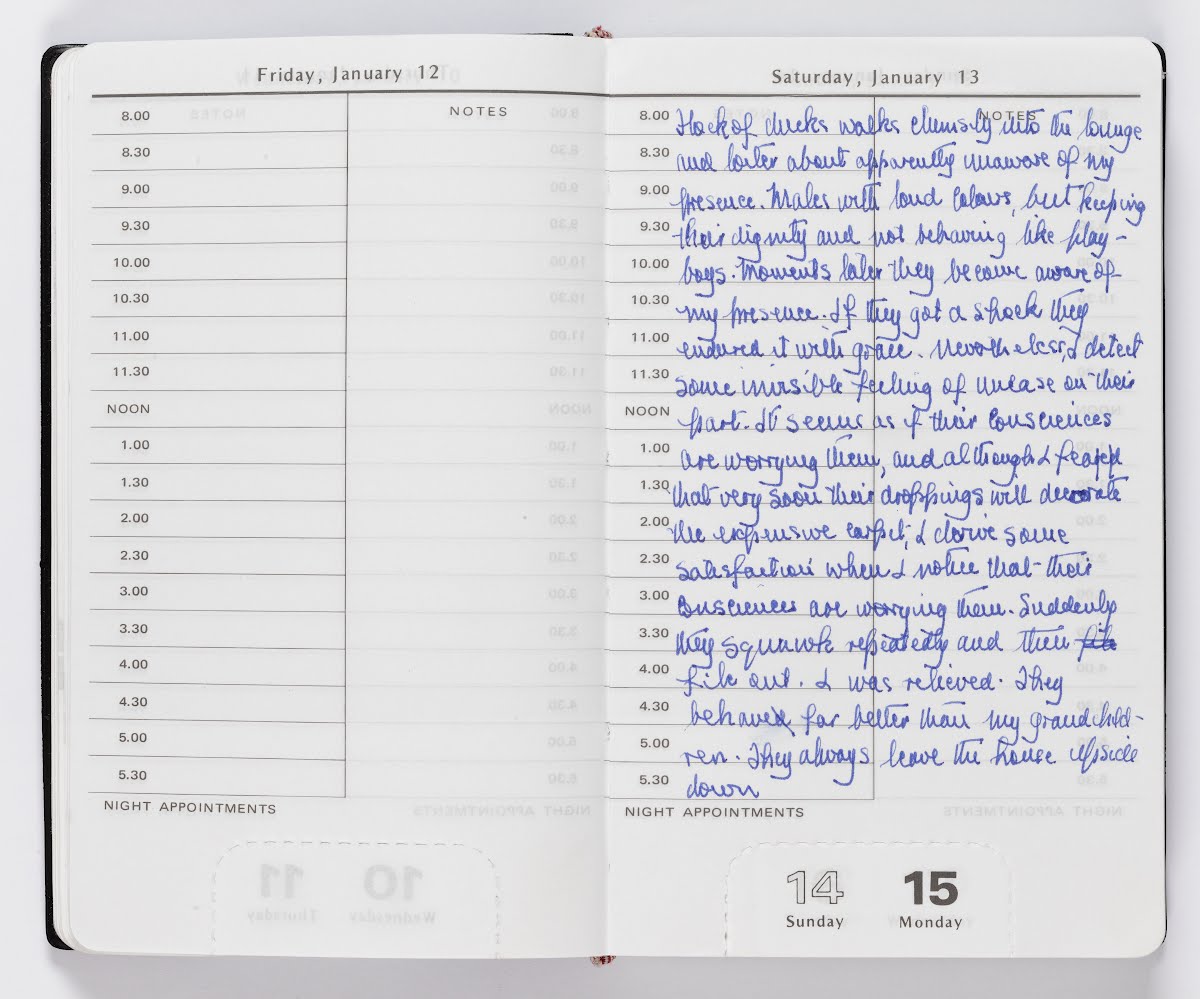 Friday, January 12
8.00
NOTES
8.30
9.00
9.30
10.00
10.30
11.00
11.30
NOON
1.00
1.30
2.00
2.30
3.00
3.30
4.00
4.30
5.00
5.30
NIGHT APPOINTMENTS
Saturday, January 13
NOTES
8.00 Flock of ducks walks clumsily into the lounge
8.30 and loiter about apparently unaware of my
9.00 presence. Males with loud colours, but keeping
9.30 their dignity and not behaving like play-
10.00 boys. Moments later they become aware of
10.30 my presence. If they got a shock they
11.00 endured it with grace. Nevertheless, I detect
11.30 some invisible feeling of unease on their
NOON part. It seems as if their consciences
1.00 are worrying them, and although I fear
1.30 that very soon their droppings will decorate
2.00 the expensive carpet, I derive some
2.30 satisfaction when I notice that their
3.00 consciences are worrying them. Suddenly
3.30 they squawk repeatedly and then file
4.00 file out. I was relieved. They
4.30 behave far better than my grandchild-
5.00 ren. They always leave the house upside
5.30 down
NIGHT APPOINTMENTS
14 15
Sunday Monday